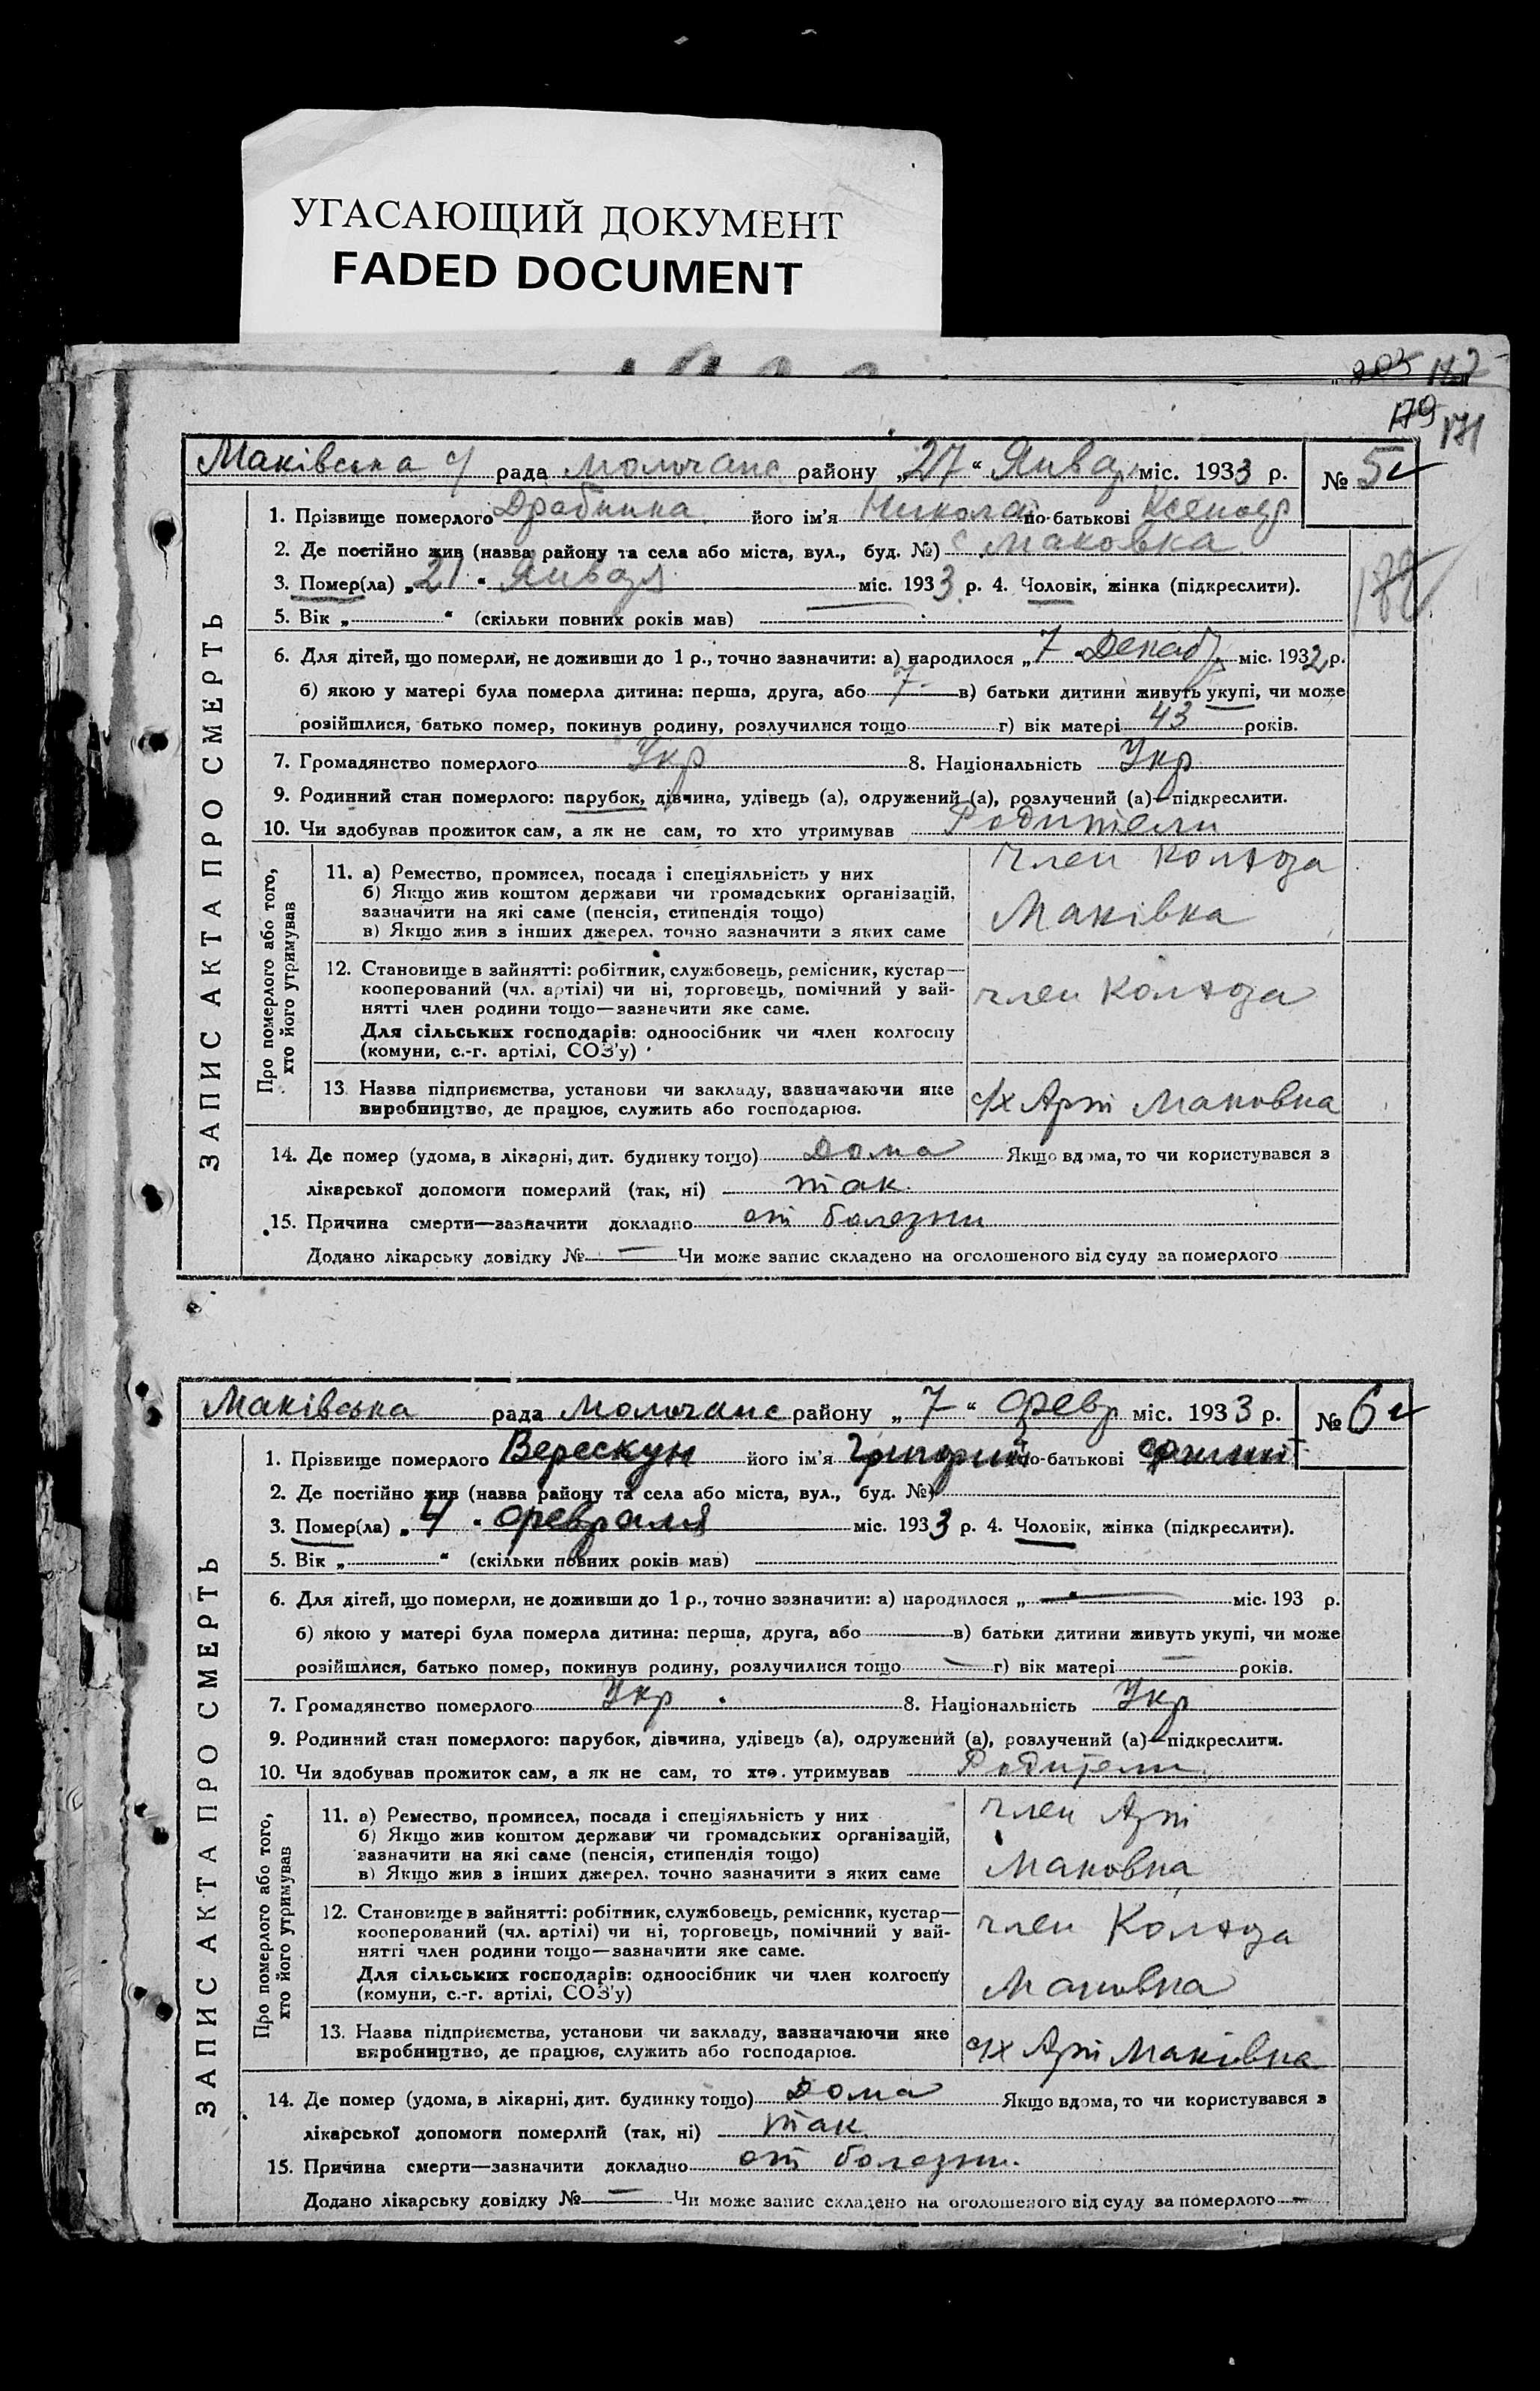 УГАСАЮЩИЙ ДОКУМЕНТ
FADED DOCUMENT
203 187
179 171
Маківська с/ рада Молочанс району „27“ Январ міс. 1933 р. № 5
1. Прізвище померлого Драбина його ім'я Николай по-батькові
2. Де постійно жив (назва району та села або міста, вул., буд. №) с Маковка
3. Помер(ла) „21“ Января міс. 1933 р. 4. Чоловік, жінка (підкреслити).
188
5. Вік „ “ (скільки повних років мав) —
6. Для дітей, що померли, не доживши до 1 р., точно зазначити: а) народилося „7 Декабр міс. 1932 р.
б) якою у матері була померла дитина: перша, друга, або 7 в) батьки дитини живуть укупі, чи може
розійшлися, батько помер, покинув родину, розлучилися тощо г) вік матері 43 років.
7. Громадянство померлого Укр 8. Національність Укр
9. Родинний стан померлого: парубок, дівчина, удівець (а), одружений (а), розлучений (а)—підкреслити.
10. Чи здобував прожиток сам, а як не сам, то хто утримував Родители
Про померлого або того, хто його утримував
11. а) Ремество, промисел, посада і спеціяльність у них
б) Якщо жив коштом держави чи громадських організацій,
зазначити на які саме (пенсія, стипендія тощо)
в) Якщо жив з інших джерел, точно зазначити з яких саме
член Колхоза
Маківка
12. Становище в зайнятті: робітник, службовець, ремісник, кустар—
кооперований (чл. артілі) чи ні, торговець, помічний у зай-
нятті член родини тощо—зазначити яке саме.
Для сільських господарів: одноосібник чи член колгоспу
(комуни, с.-г. артілі, СОЗ'у)
член Колхоза
13. Назва підприємства, установи чи закладу, зазначаючи яке
виробництво, де працює, служить або господарює.
с/х Арт Маковка
14. Де помер (удома, в лікарні, дит. будинку тощо) Дома Якщо вдома, то чи користувався з
лікарської допомоги померлий (так, ні) так
15. Причина смерти—зазначити докладно от болезни
Додано лікарську довідку № — Чи може запис складено на оголошеного від суду за померлого
ЗАПИС АКТА ПРО СМЕРТЬ
Маківська рада Молочанс району „7“ февр міс. 1933 р. № 6
1. Прізвище померлого Верескун його ім'я Григорий по-батькові
2. Де постійно жив (назва району та села або міста, вул., буд. №)
3. Помер(ла) „4“ февраля міс. 1933 р. 4. Чоловік, жінка (підкреслити).
5. Вік „ “ (скільки повних років мав)
6. Для дітей, що померли, не доживши до 1 р., точно зазначити: а) народилося „—“ — міс. 193 р.
б) якою у матері була померла дитина: перша, друга, або в) батьки дитини живуть укупі, чи може
розійшлися, батько помер, покинув родину, розлучилися тощо — г) вік матері — років.
7. Громадянство померлого Укр 8. Національність Укр
9. Родинний стан померлого: парубок, дівчина, удівець (а), одружений (а), розлучений (а)—підкреслити.
10. Чи здобував прожиток сам, а як не сам, то хто утримував Родители
Про померлого або того, хто його утримував
11. а) Ремество, промисел, посада і спеціяльність у них
б) Якщо жив коштом держави чи громадських організацій,
зазначити на які саме (пенсія, стипендія тощо)
в) Якщо жив з інших джерел, точно зазначити з яких саме
член Арт
Маковка
12. Становище в зайнятті: робітник, службовець, ремісник, кустар—
кооперований (чл. артілі) чи ні, торговець, помічний у зай-
нятті член родини тощо—зазначити яке саме.
Для сільських господарів: одноосібник чи член колгоспу
(комуни, с.-г. артілі, СОЗ'у)
член Колхоза
Маковка
13. Назва підприємства, установи чи закладу, зазначаючи яке
виробництво, де працює, служить або господарює.
с/х Арт Маківка
14. Де помер (удома, в лікарні, дит. будинку тощо) Дома Якщо вдома, то чи користувався з
лікарської допомоги померлий (так, ні) так
15. Причина смерти—зазначити докладно от болезни.
Додано лікарську довідку № — Чи може запис складено на оголошеного від суду за померлого —
ЗАПИС АКТА ПРО СМЕРТЬ